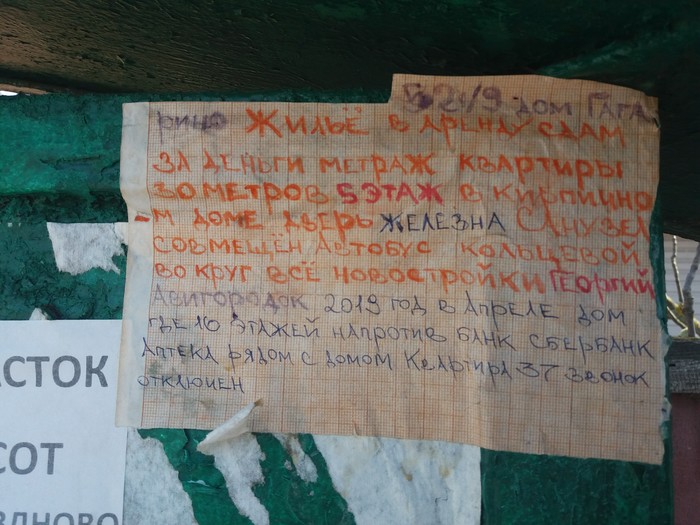 21/9 ДОМ ГАГА
РИНО ЖИЛЬЁ В АРЕНДУ СДАМ
ЗА ДЕНЬГИ МЕТРАЖ КВАРТИРЫ
30 МЕТРОВ 5 ЭТАЖ В КИРПИЧНО
-М ДОМЕ ДВЕРЬ ЖЕЛЕЗНА САНУЗЕЛ
СОВМЕЩЁН АВТОБУС КОЛЬЦЕВОЙ
ВОКРУГ ВСЁ НОВОСТРОЙКИ ГЕОРГИЙ
АВИГОРОДОК 2019 ГОД В АПРЕЛЕ ДОМ
ГДЕ 10 ЭТАЖЕЙ НАПРОТИВ БАНК СБЕРБАНК
АПТЕКА РЯДОМ С ДОМОМ КВАРТИРА 37 ЗВОНОК
ОТКЛЮЧЕН
АСТОК
СОТ
ЗДНОВО